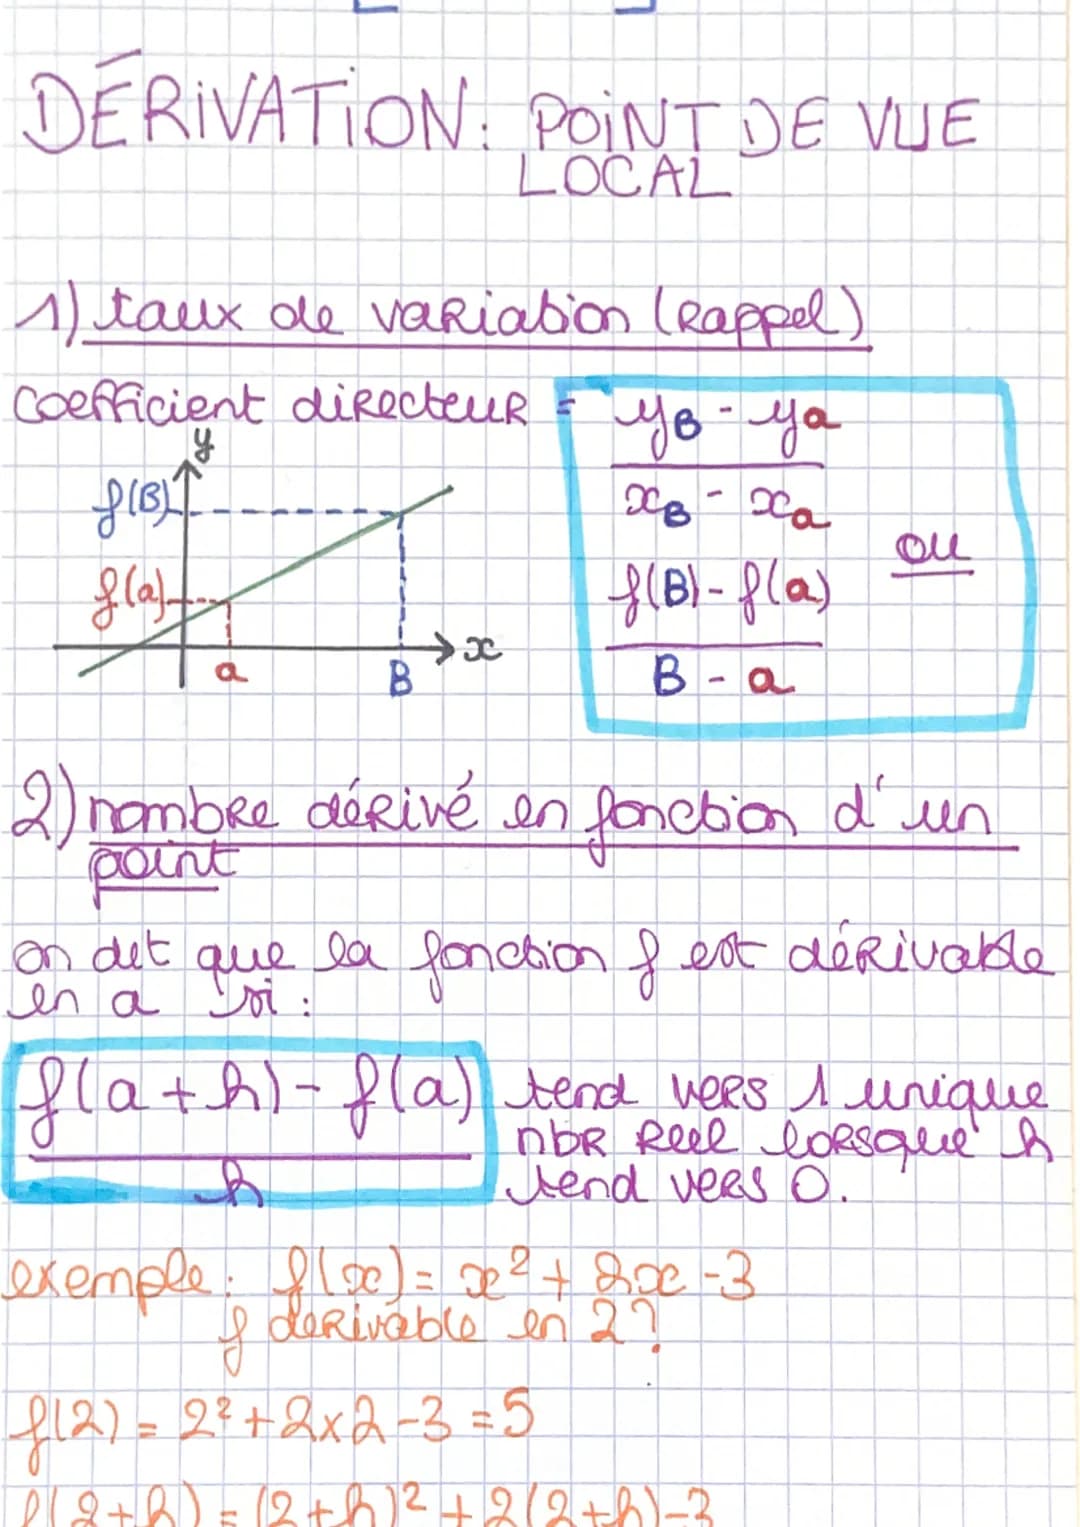 DÉRIVATION: POINT DE VUE
LOCAL
1) taux de variation (Rappel)
coefficient directeur = yB - ya
xB - xa
ou
f(B) - f(a)
B - a
y
f(B)
f(a)
x
a
B
2) nombre dérivé en fonction d'un
point
on dit que la fonction f est dérivable
en a si :
f(a + h) - f(a)
h
tend vers 1 unique
nbr reel lorsque h
tend vers 0.
exemple: f(x) = x² + 2x - 3
f derivable en 2 ?
f(2) = 2² + 2x2 - 3 = 5
f(2+h) = (2+h)² + 2(2+h) - 3